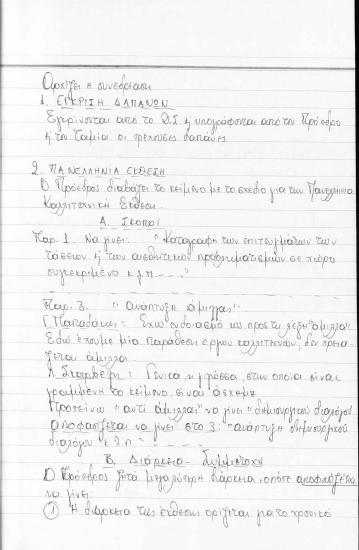 Αρχίζει η συνεδρίαση
1. ΕΓΚΡΙΣΗ ΔΑΠΑΝΩΝ
Εγκρίνονται από το Δ.Σ. & υπογράφονται από την Πρόεδρο
& την Ταμία οι τρέχουσες δαπάνες
2. ΠΑΝΕΛΛΗΝΙΑ ΕΚΘΕΣΗ
Ο Πρόεδρος διαβάζει το κείμενο με το σχέδιο για την Πανελλήνια
Καλλιτεχνική Έκθεση.
Α. ΣΚΟΠΟΙ
Παρ. 1. Να γίνει: "Καταγραφή των επιτευγμάτων των
τάσεων & των αισθητικών προβληματισμών σε χώρο
συγκεκριμένο κ.λ.π. ----"
Παρ. 3. "Ανάπτυξη άμιλλας"
Γ. Παπαδάκης: Έχω ενδοιασμό ως προς τη λέξη "άμιλλα".
Εδώ έχουμε μία παράθεση έργων καλλιτεχνών, δεν χρειά-
ζεται άμιλλα.
Λ. : Γενικά η γλώσσα, στην οποία είναι
γραμμένη το κείμενο, είναι άσχημη.
Προτείνω "αντί άμιλλας" να γίνει "δημιουργικού διαλόγου"
αποφασίζεται να γίνει στο 3: "ανάπτυξη δημιουργικού
διαλόγου κ.λ.π."
Β. Διάρκεια - Συμμετοχή
Ο Πρόεδρος ζητά μεγαλύτερη διάρκεια, οπότε αποφασίζεται
να γίνει
① Η διάρκεια της έκθεσης ορίζεται για το χρονικό